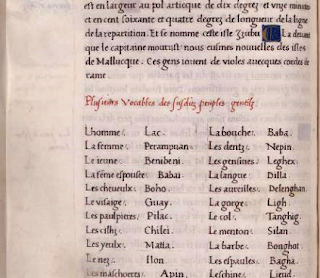 est en largeur au pol artique de dix degrez et unze minutz
et en cent soixante et quatre degrez de longueur de la ligne
de la repartition. Et se nomme ceste isle Zzubu. La devant
que le capitaine mourust nous eusmes nouvelles des isles
de Mallucque. Ces gens iouent de violes avecques cordes de
rame.
Plusieurs Vocables des susdiz peuples gentilz.
Lhomme. Lac. La bouche. Baba.
La femme. Perampuan. Les dentz. Nepin.
Le ieune. Benibeni. Les gensines. Leghex.
La feme espouse. Babai. La langue. Dilla
Les cheueulx. Boho. Les aureilles. Delenghan.
Le visaige. Guay. La gorge. Ligh.
Les paulpieres. Pilac. Le col. Tanghig.
Les cilhz. Chilei. Le menton. Silan.
Les yeulx. Matta. La barbe. Bonghot.
Le nez. Ilon. Les espaules. Bagha.
Les maschoeres. Apin. Leschine. Licud.